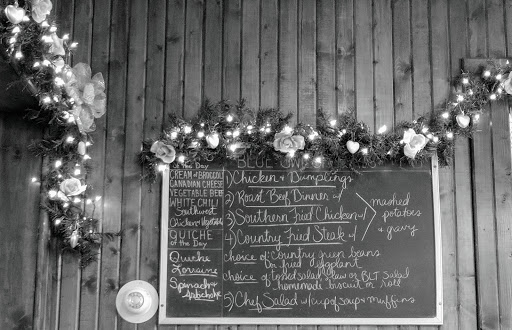 of the Day
CREAM of BROCCOLI
CANADIAN CHEESE
VEGETABLE BEEF
WHITE CHILI
Southwest
Chicken & Vegetable
QUICHE
of the Day
Quiche
Lorraine
Spinach &
Artichoke
BLUE
1) Chicken & Dumplings
2) Roast Beef Dinner w/
3) Southern Fried Chicken w/
4) Country Fried Steak w/
mashed
potatoes
& gravy
choice of Country green beans
or fried eggplant
choice of tossed salad, slaw or BLT Salad
homemade biscuit or roll
5) Chef Salad w/cup of soup & muffins